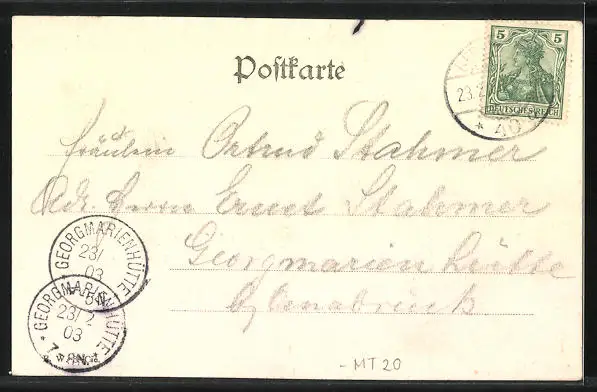 Postkarte
5 5
DEUTSCHES REICH
23.2
Fräulein Ortrud Stahmer
Adr. Herrn Ernst Stahmer
Georgmarienhütte
b/Osnabrück
* GEORGMARIENHÜTTE
23/
03
* GEORGMARIENHÜTTE
23/2
03
7-8N.
-MT20